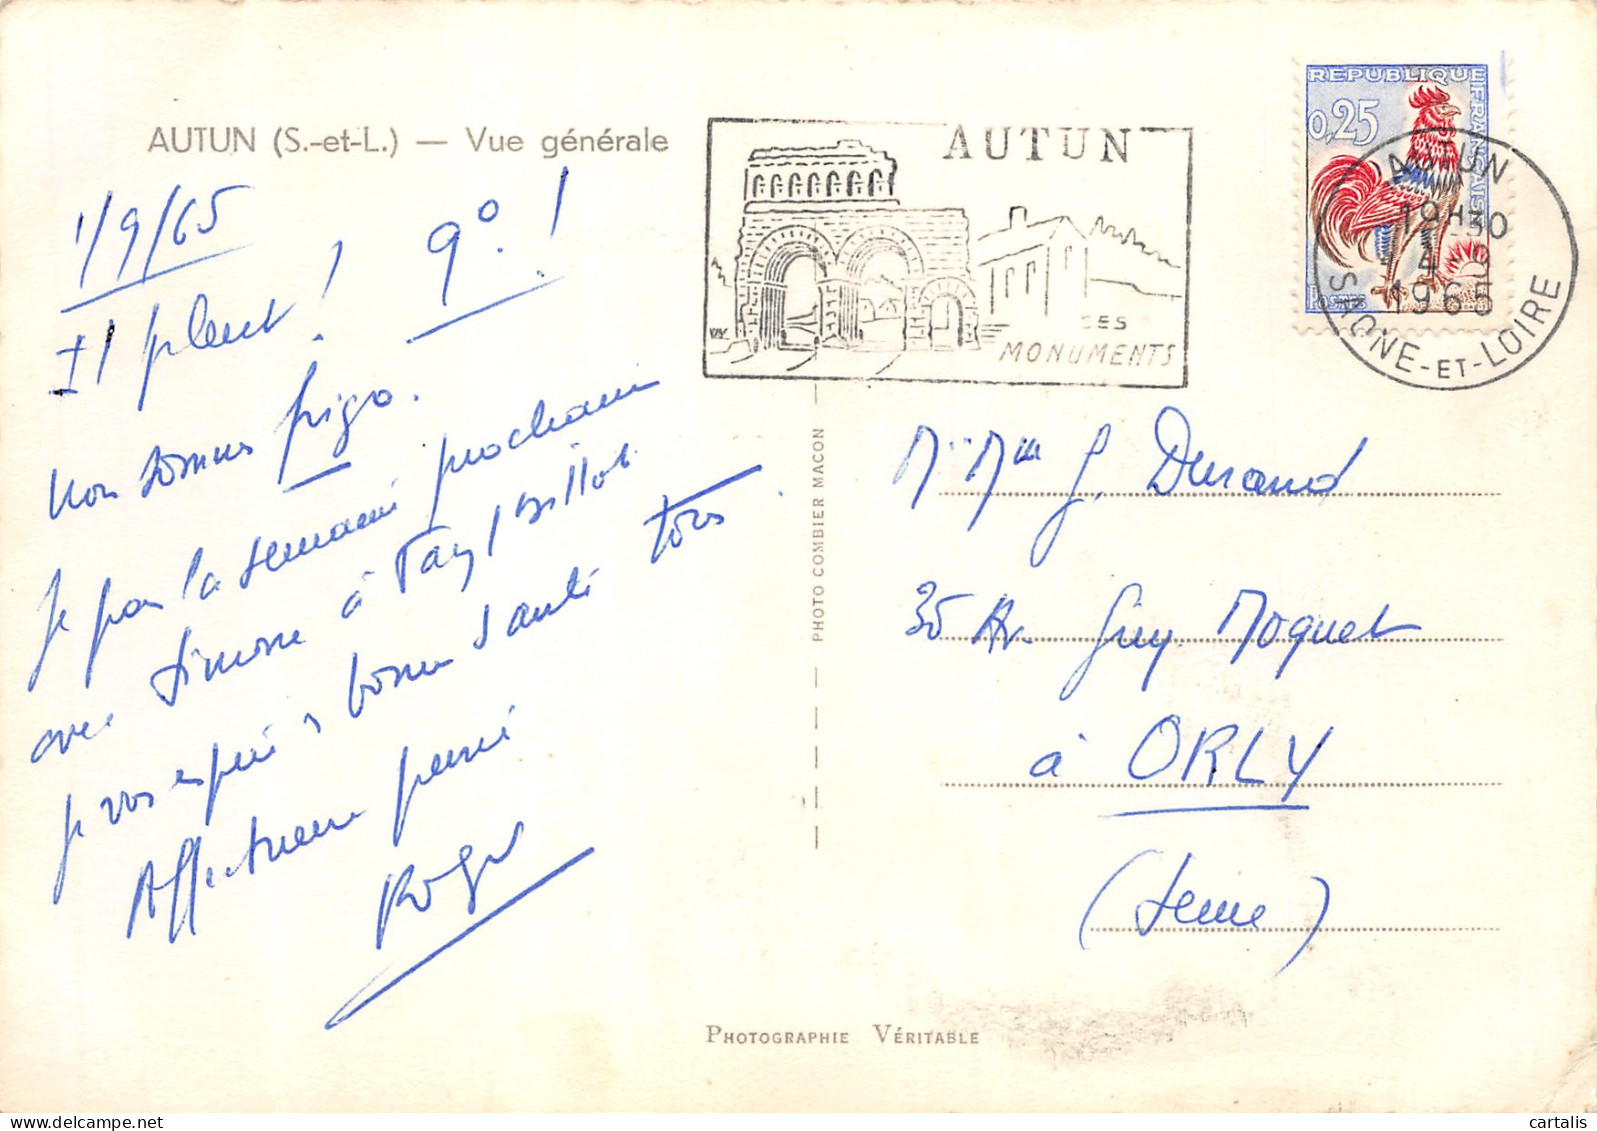 AUTUN (S.-et-L.) — Vue générale
1/9/65
Il pleut ! 9° !
Nous sommes frigo.
Je pars la semaine prochaine
avec Simone à
Je vous espère bonne santé tous
Affectueuse pensée
Roger
AUTUN
SES
MONUMENTS
REPUBLIQUE FRANÇAISE
0,25
POSTES
AUTUN
19H30
1965
SAONE-ET-LOIRE
PHOTO COMBIER MACON
M. Mme J. Durand
35 Av. Guy Moquet
à ORLY
(Seine)
PHOTOGRAPHIE VÉRITABLE
cartalis